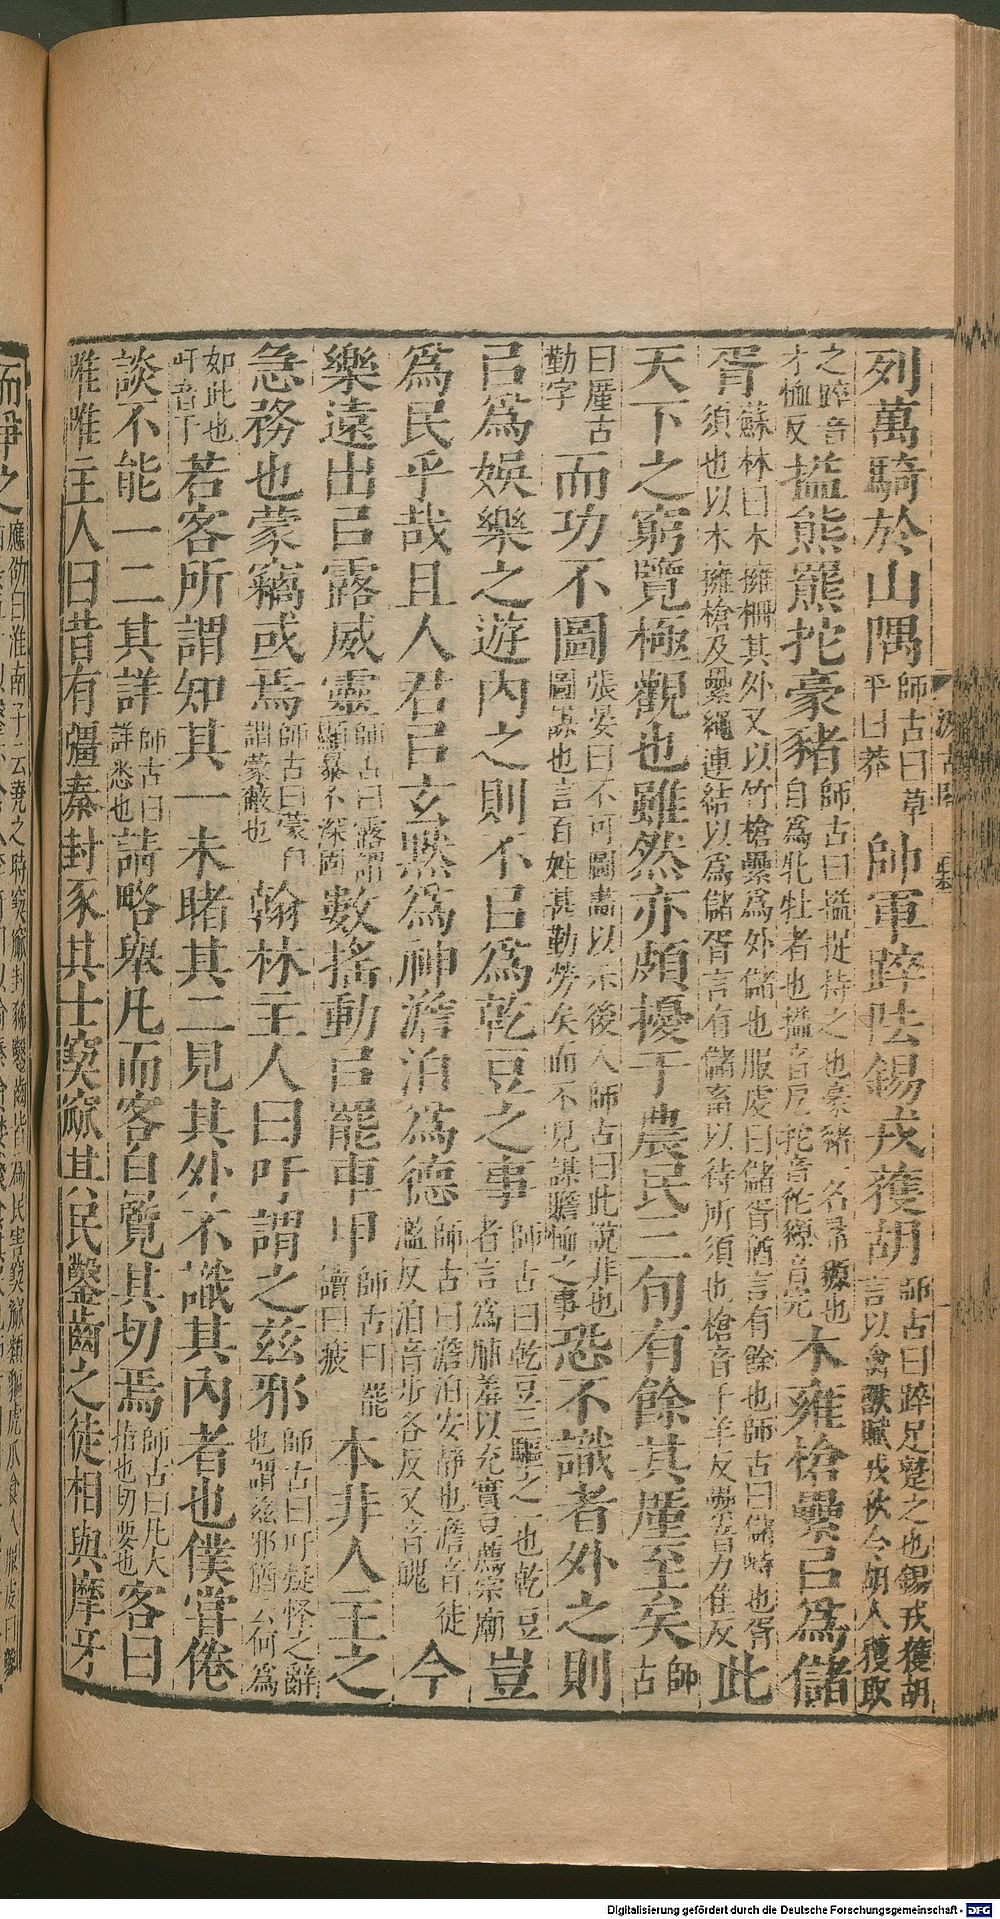 列萬騎於山隅師古曰草平曰莽帥軍踤阹錫戎獲胡師古曰踤足蹵之也錫戎獲胡言以禽獸賦戎狄令胡人獲取
之踤音才恤反搤熊羆拕豪豬師古曰搤捉持之也豪豬一名帚㺠也自爲牝牡者也搤音厄拕音佗㺠音完木雍槍纍㠯爲儲
胥蘇林曰木擁柵其外又以竹槍纍爲外儲也服虔曰儲胥猶言有餘也師古曰儲峙也胥須也以木擁槍及纍繩連結以爲儲胥言有儲畜以待所須也槍音千羊反纍音力隹反此
天下之窮覽極觀也雖然亦頗擾于農民三旬有餘其廑至矣師古
曰廑古勤字而功不圖張晏曰不可圖畫以示後人師古曰此說非也圖謀也言百姓甚勤勞矣而不見謀贍恤之事恐不識者外之則
㠯爲娛樂之遊內之則不㠯爲乾豆之事師古曰乾豆三驅之一也乾豆者言爲脯羞以充實豆薦宗廟豈
爲民乎哉且人君㠯玄默爲神澹泊爲德師古曰澹泊安靜也澹音徒濫反泊音步各反又音魄今
樂遠出㠯露威靈師古曰露謂顯暴不深固數搖動㠯罷車甲師古曰罷讀曰疲本非人主之
急務也蒙竊或焉師古曰蒙自謂蒙蔽也翰林主人曰吁謂之茲邪師古曰吁疑怪之辭也謂茲邪猶云何爲
如此也吁音于若客所謂知其一未睹其二見其外不識其內者也僕嘗倦
談不能一二其詳師古曰詳悉也請略舉凡而客自覽其切焉師古曰凡大指也切要也客曰
唯唯主人曰昔有彊秦封豕其士窫窳其民鑿齒之徒相與摩牙
而爭之應劭曰淮南子云堯之時窫窳封豨鑿齒皆爲民害窫窳類貙虎爪食人服虔曰鑿
汲古閣
Digitalisierung gefördert durch die Deutsche Forschungsgemeinschaft - DFG